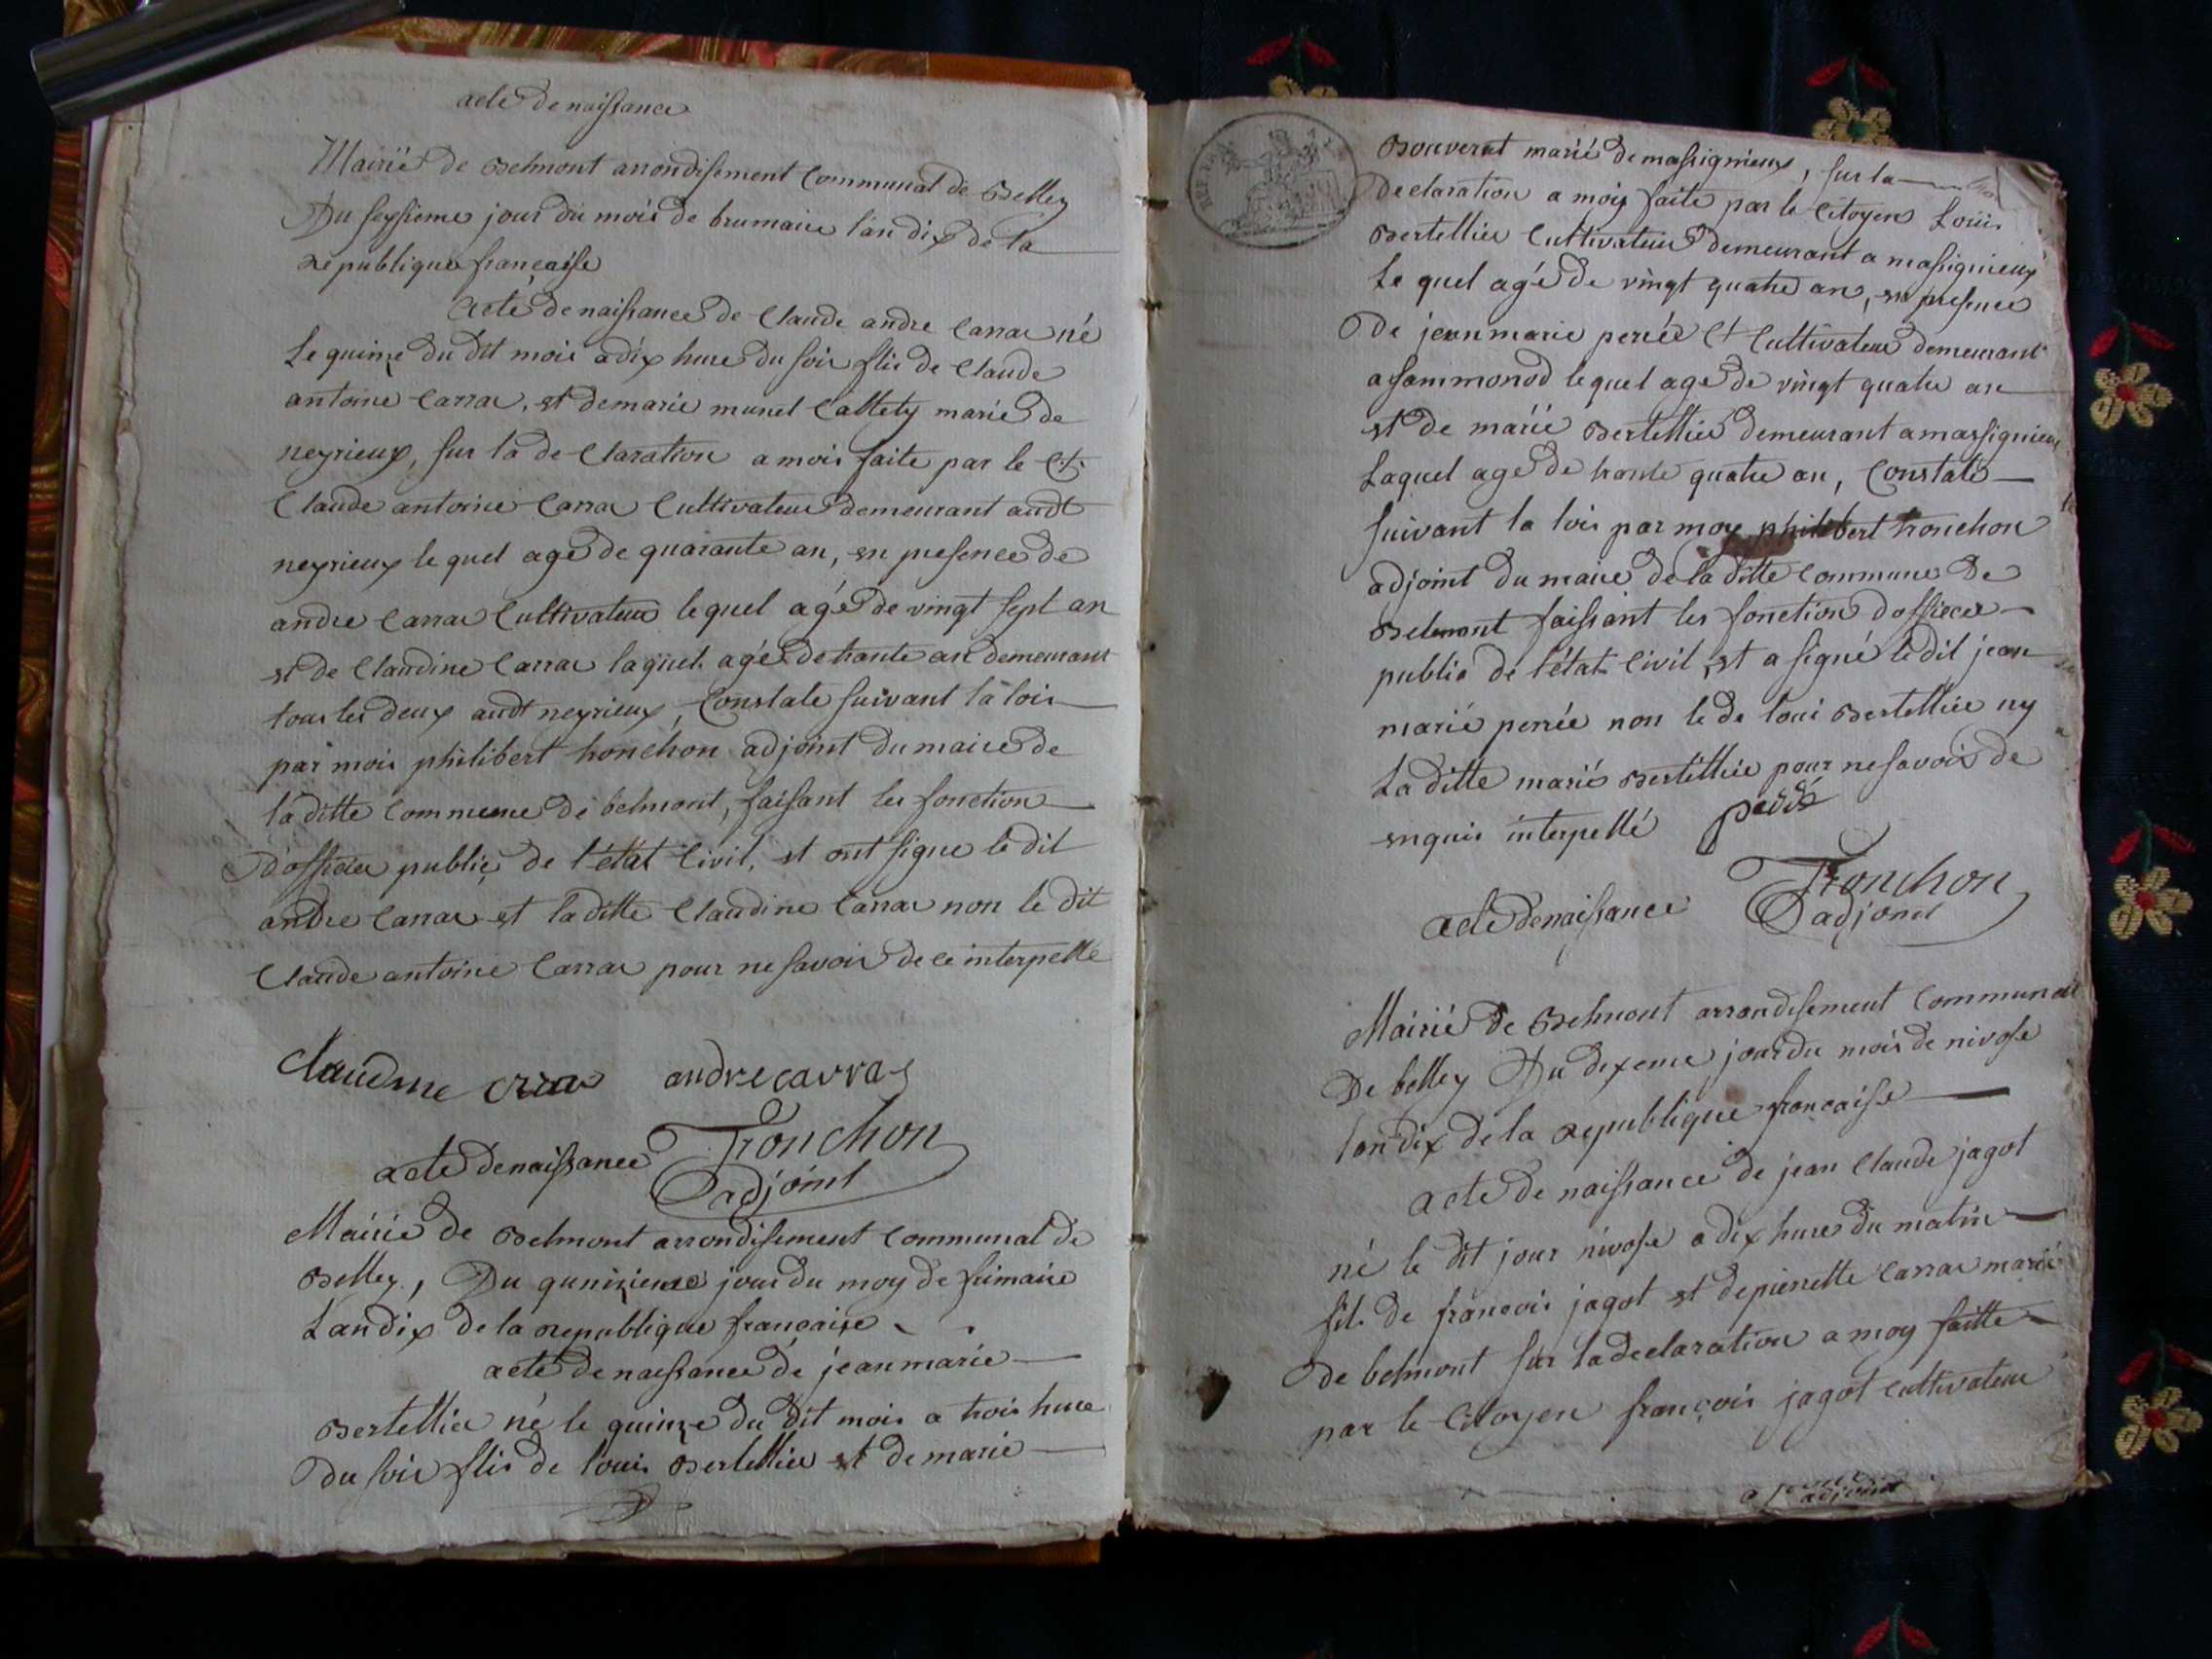 acte de naissance
Mairie de Belmont arrondisement Communal de Belley
Du seysieme jour du mois de brumaire l'an dix de la
republique françaisse
Acte de naissance de Claude andre Carrar né
Le quinze du dit mois a dix hure du soir flis de Claude
antoine Carrar, et de marie munet Callety marié de
neyrieux, sur la de Claration a mois faite par le Ct.
Claude antoine Carrar Cultivateur demeurant audt
neyrieux le quel age de quarante an, en presence de
andre Carrar Cultivateur le quel agé de vingt sept an
et de Claudine Carrar laquel agé de trante an demeurant
tous les deux audt neyrieux, Constate suivant la lois
par mois philibert tronchon adjoint du maire de
la ditte commune de belmont, faisant les fonction
d'officier public de l'état Civil, et ont signe le dit
andre Carrar et la ditte Claudine Carrar non le dit
Claude antoine Carrar pour ne savoir de ce interpellé
Claudine andre carra
Tronchon
acte de naissance
adjoint
Mairie de Belmont arrondisement Communal de
Belley, Du qunizieme jour du moy de frimaire
Lan dix de la republique française
acte de naissance de jean marie
Bertellier né le quinze du dit mois a trois hure
Du soir flis de louis Bertellier et de marie
Bouverat marié de massignieux, sur la
declaration a moy faite par le Citoyen Louis
Bertellier Cultivateur demeurant a massignieux
Le quel agé de vingt quatre an, en presence
De jean marie perrée Ct Cultivateur demeurant
a sammonod le quel age de vingt quatre an
et de marie Bertellier demeurant a massignieux
Laquel age de trante quatre an, Constate
suivant la lois par moy philibert tronchon
adjoint du maire de la ditte Commune de
Belmont faissant les fonction d'officer
public de l'état Civil, et a signé le dit jean
marie perrée non le de loui Bertellier ny
La ditte marie Bertellier pour ne savoir de
enquis interpellé
Tronchon
acte de naissance
adjoint
Mairie de Belmont arrondisement Communal
De belley Du dixeme jour du mois de nivose
lan dix de la republique francaisse
acte de naissance de jean Claude jagot
né le dit jour nivose a dix hure du matin
fils de francois jagot et de pierrette Carrar marié
De belmont sur la declaration a moy faitte
par le Citoyen françois jagot cultivateur
adjoint